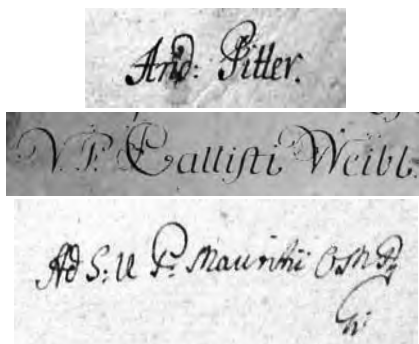 And: Pitter.
V. P. Callisti Weibl.
Ad S: U P: Mauritii